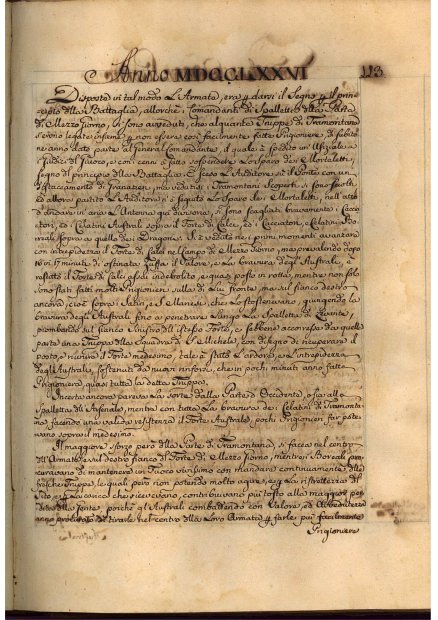 Anno MDCCLXXVI 113
Disposta in tal modo L'Armata, era p darsi il Segno p il prin
cipio della Battaglia, allorchè i Comandanti di Spalletta della Parte
di Mezzo Giorno, si sono aveduti, che alquante Truppe di Tramontana
s'erono legate insiema p non essere così facilmente fatte Prigioniere, di subito
ne anno dato parte al General Comandante, il quale à spedito un Ufiziale a
Giudici di Fuoco, e con cenni à fatto sospendere Lo sparo dei Mortaletti,
segno del principio della Battaglia. E sceso L'Auditore sù il Ponte con un
distaccamento di Granatieri, ma vedutisi i Tramontani Scoperti si sono sciolti,
ed allora partito L'Auditore n'è seguito Lo Sparo dei Mortaletti, nell'atto
d'alzare in aria L'Antenna già divisoria, si sono scagliati bravamente i Caccia
tori, ed i Celatini Australi sopra il Forte di Calci, ed i Cacciatori, e Celatini Bo
reali sopra a quello dei Dragoni. S'è veduto nei primi momenti avanzare
con intrepidezza il Forte di Calci nel Campo di Mezzo Giorno, ma prevalendo dopo
16 in 17 minuti di ostinata Zuffa il valore, e La bravura degli Australi, è
restato il Forte di Calci assai indebolito, e quasi posto in rotta, mentre non solo
sono stati fatti molti Prigionieri sulla di Lui fronte, ma sul fianco destro
ancora, cioè sopra i Satiri, e S. Marco, che Lo sostenevano, giungendo la
bravura degli Australi fino a penetrare Lungo La Spalletta di Levante,
piombando sul fianco Sinistro dell'istesso Forte, e sebbene accorressa da quella
parte una Truppa della Squadra di S. Michele, con disegno di recuperare il
posto, e riunire il Forte medesimo, tale è stato L'ardore, e L'intrepidezza
degli Australi, sostenuti da nuovi rinforzi, che in pochi minuti anno fatta
Prigioniera quasi tutta la detta Truppa.
Incerta ancora pareva La sorte dalla Parte di Occidente, o sia alla
Spalletta dell'Arsenale, mentre con tutta La bravura de' Celatini di Tramonta
na facendo una valida resistenza il Forte Australe, pochi Prigionieri far pote
vano sopra il medesimo.
Il maggiore sforzo però della Parte di Tramontana, si facea nel centro
dell'Armata e sul destro fianco del Forte di Mezzo Giorno, mentre i Boreali pro
curavano di mantenere un Fuoco vivissimo con mandare continuamente delle
fresche Truppe, le quali però non potendo molto agire, e p La ristrettezza del
Sito, e p La carica che ricevevano, contribuivano più tosto alla maggior per
dita della Gente, poichè gl'Australi combattendo con Valore, ed Avvedutezza
anno procurato di tirarle nel centro della Loro Armata p farle più facilmente
Prigioniere